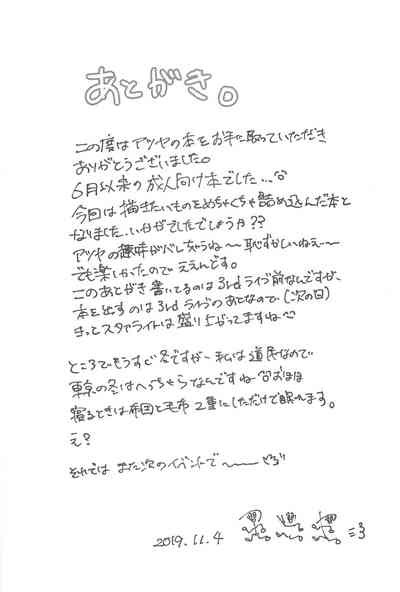 あとがき。
この度はアツヤの本をお手に取っていただき
ありがとうございました。
6月以来の成人向け本でした…
今回は描きたいものをめちゃくちゃ詰め込んだ本と
なりました。いかがでしたでしょうか??
アツヤの趣味がバレちゃうね〜恥ずかしいねぇ〜
でも楽しかったのでええんです。
このあとがき書いてるのは3rdライブ前なんですが、
本を出すのは3rdライブのあとなので(次の日)
きっとスタァライトは盛り上がってますね
ところでもうすぐ冬ですが、私は道民なので
東京の冬はへっちゃらなんですね おほほ
寝るときは布団と毛布2重にしただけで眠れます。
え?
それでは また次のイベントで〜
2019.11.4